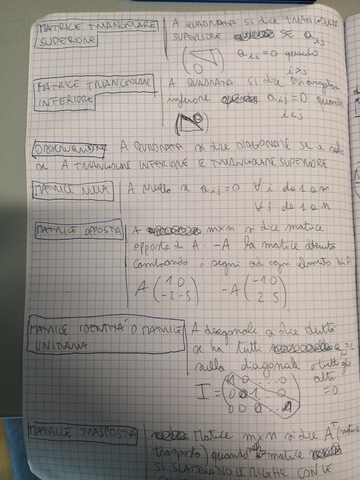 MATRICE TRIANGOLARE SUPERIORE
A QUADRATA SI DICE TRIANGOLARE
SUPERIORE SE aij
aij = 0 quando
i > j
0
MATRICE TRIANGOLARE INFERIORE
A QUADRATA si dice triangolare
inferiore aij = 0 quando
i < j
A QUADRATA si dice DIAGONALE se e solo
se A TRIANGOLARE INFERIORE E TRIANGOLARE SUPERIORE
MATRICE NULLA
A Nulla se aij = 0 ∀ i da 1 a m
∀ j da 1 a n
MATRICE OPPOSTA
A m×n si dice matrice
opposta di A -A la matrice ottenuta
cambiando i segni ad ogni elemento di A
A (1 0
-2 -5) -A (-1 0
2 5)
MATRICE IDENTITÀ O MATRICE UNITARIA
A diagonale si dice
se ha tutti = 1
sulla diagonale e tutti gli
altri
= 0
I =
MATRICE TRASPOSTA
Matrice m×n si dice Aᵀ (matrice
trasposta) quando matrice
SI SCAMBIANO LE RIGHE CON LE